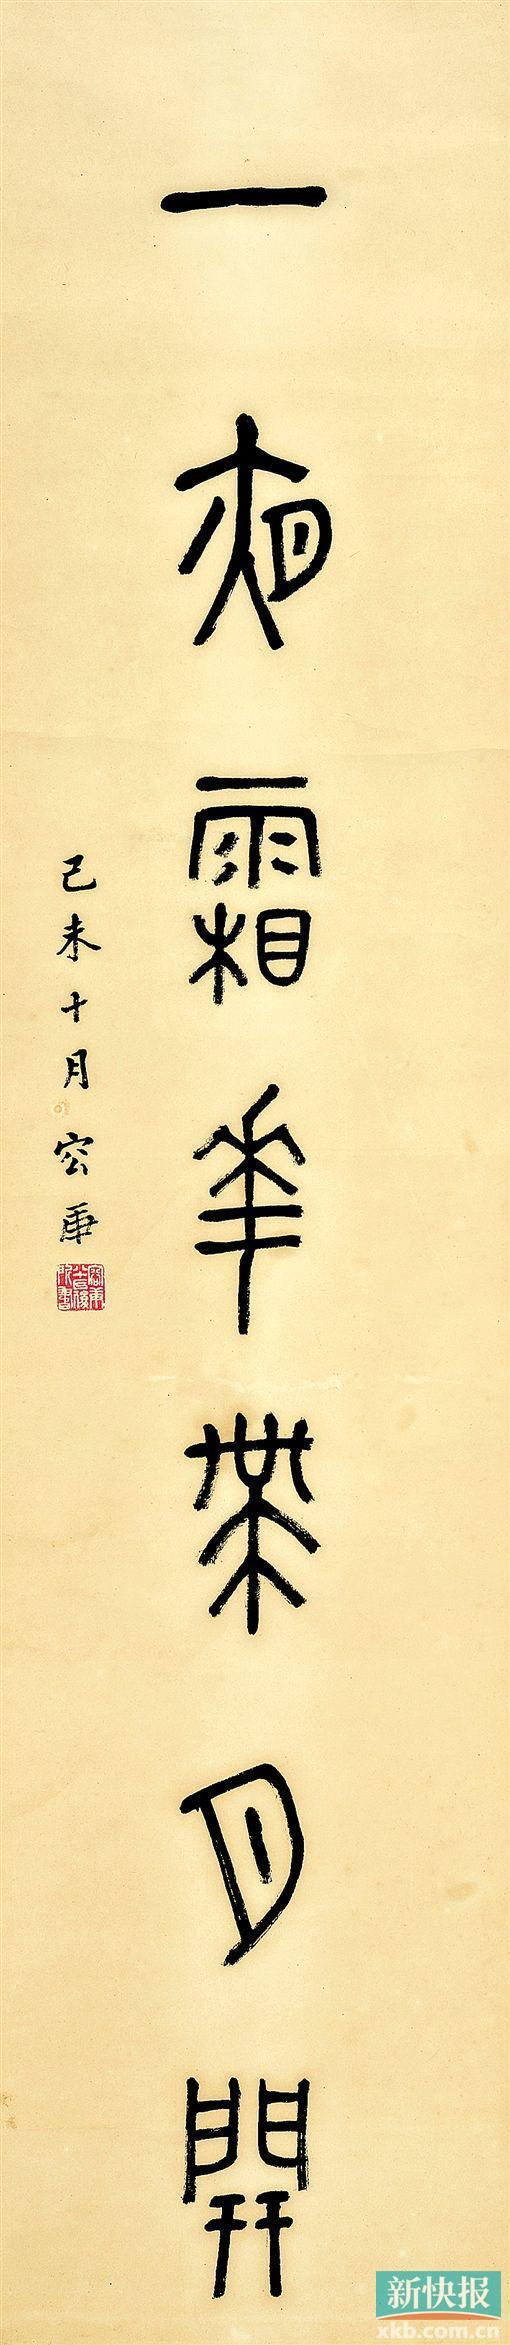 一夜霜華枼月開
己未十月 容庚
新快报
xkb.com.cn